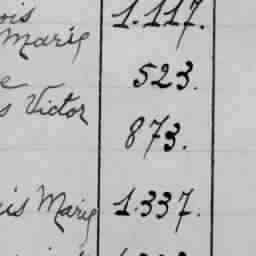 ois 1.117.
Marie
e 523.
s Victor
873.
is Marie 1.337.